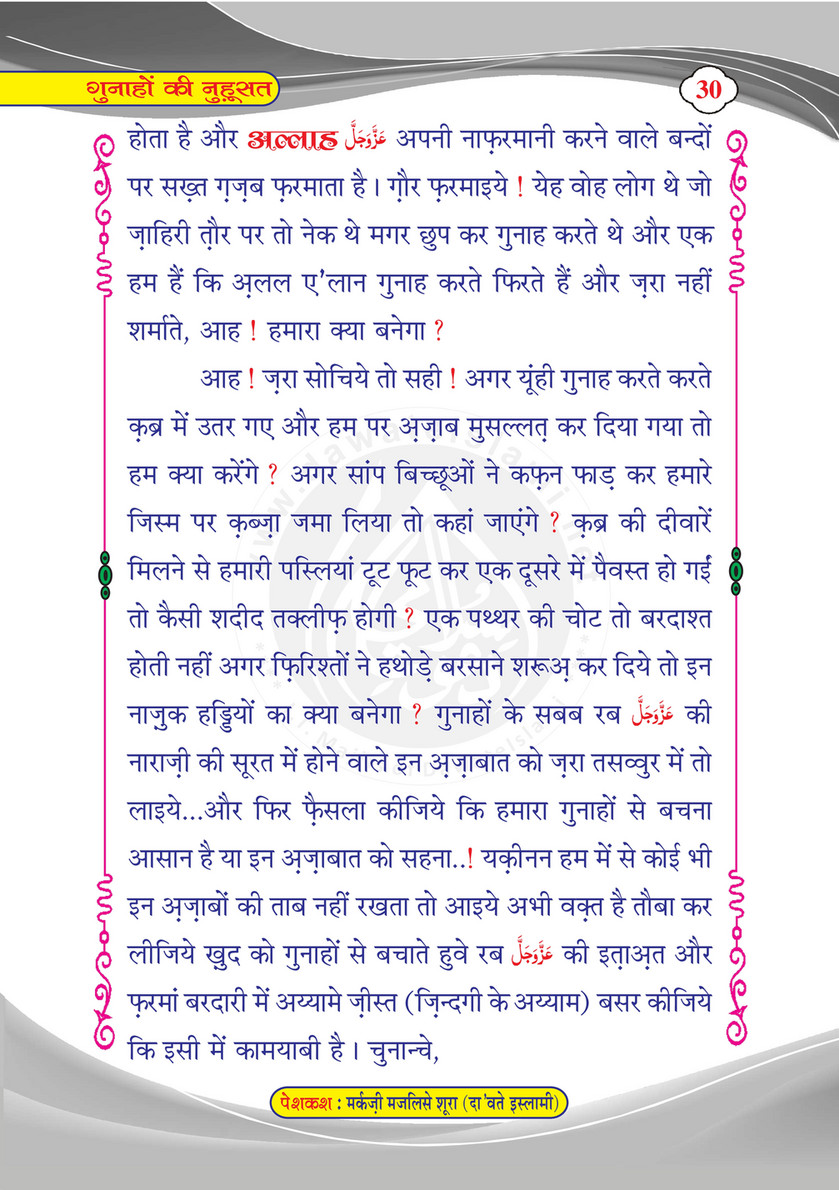 गुनाहों की नुहूसत
30
होता है और अल्लाह عَزَّوَجَلَّ अपनी नाफ़रमानी करने वाले बन्दों
पर सख़्त ग़ज़ब फ़रमाता है। ग़ौर फ़रमाइये ! येह वोह लोग थे जो
ज़ाहिरी त़ौर पर तो नेक थे मगर छुप कर गुनाह करते थे और एक
हम हैं कि अ़लल ए'लान गुनाह करते फिरते हैं और ज़रा नहीं
शर्माते, आह ! हमारा क्या बनेगा ?
आह ! ज़रा सोचिये तो सही ! अगर यूंही गुनाह करते करते
क़ब्र में उतर गए और हम पर अ़ज़ाब मुसल्लत़ कर दिया गया तो
हम क्या करेंगे ? अगर सांप बिच्छूओं ने कफ़न फाड़ कर हमारे
जिस्म पर क़ब्ज़ा जमा लिया तो कहां जाएंगे ? क़ब्र की दीवारें
मिलने से हमारी पस्लियां टूट फूट कर एक दूसरे में पैवस्त हो गईं
तो कैसी शदीद तक्लीफ़ होगी ? एक पथ्थर की चोट तो बरदाश्त
होती नहीं अगर फ़िरिश्तों ने हथोड़े बरसाने शरूअ़ कर दिये तो इन
नाज़ुक हड्डियों का क्या बनेगा ? गुनाहों के सबब रब عَزَّوَجَلَّ की
नाराज़ी की सूरत में होने वाले इन अ़ज़ाबात को ज़रा तसव्वुर में तो
लाइये...और फिर फ़ैसला कीजिये कि हमारा गुनाहों से बचना
आसान है या इन अ़ज़ाबात को सहना..! यक़ीनन हम में से कोई भी
इन अ़ज़ाबों की ताब नहीं रखता तो आइये अभी वक़्त है तौबा कर
लीजिये ख़ुद को गुनाहों से बचाते हुवे रब عَزَّوَجَلَّ की इत़ाअ़त और
फ़रमां बरदारी में अय्यामे ज़ीस्त (ज़िन्दगी के अय्याम) बसर कीजिये
कि इसी में कामयाबी है। चुनान्चे,
पेशकश : मर्कज़ी मजलिसे शूरा (दा'वते इस्लामी)